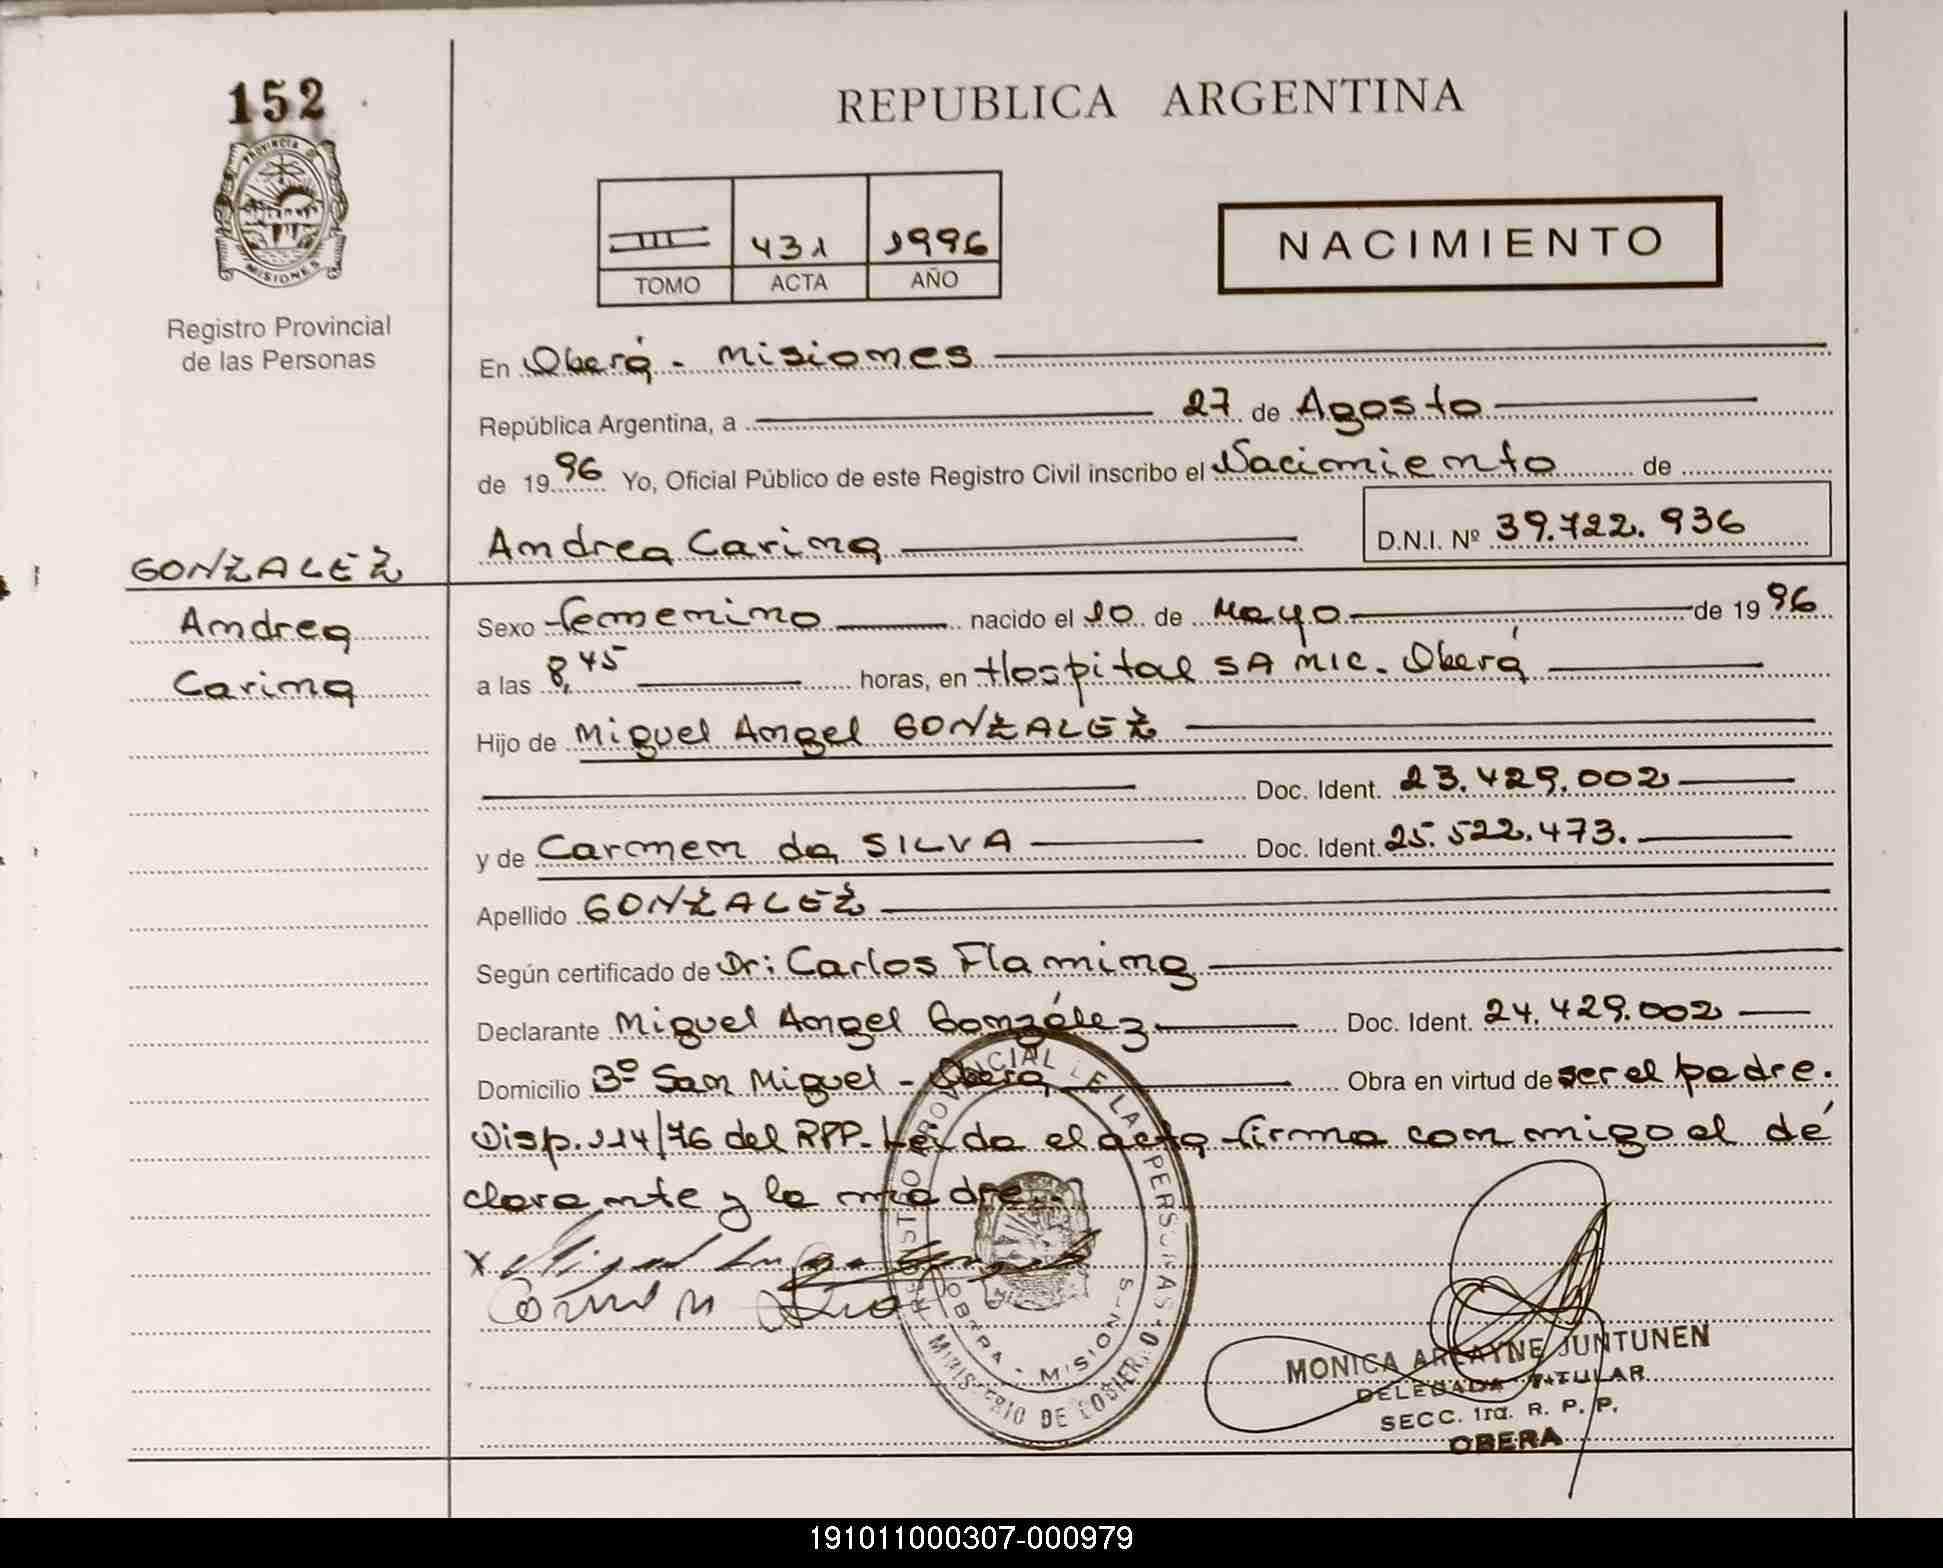 152
REPUBLICA ARGENTINA
PROVINCIA DE MISIONES
III 431 1996
TOMO ACTA AÑO
NACIMIENTO
Registro Provincial
de las Personas
En Oberá - Misiones
República Argentina, a 27 de Agosto
de 1996 Yo, Oficial Público de este Registro Civil inscribo el Nacimiento de
Andrea Carina D.N.I. Nº 39.722.936
GONZALEZ
Andrea
Carina
Sexo femenino nacido el 10 de Mayo de 1996
a las 8,45 horas, en Hospital SAMIC. Oberá
Hijo de Miguel Angel GONZALEZ
Doc. Ident. 23.429.002
y de Carmen da SILVA Doc. Ident. 25.522.473.
Apellido GONZALEZ
Según certificado de Dr: Carlos Flaming
Declarante Miguel Angel González Doc. Ident. 24.429.002
Domicilio Bº San Miguel - Oberá Obra en virtud de ser el padre.
Disp. 114/76 del RPP. Leída el acta firma conmigo el de
clarante y la madre.
REGISTRO PROVINCIAL DE LAS PERSONAS
OBERA - MISIONES
MINISTERIO DE GOBIERNO
MONICA ARLAYNE JUNTUNEN
DELEGADA TITULAR
SECC. 1ra. R. P. P.
OBERA
191011000307-000979